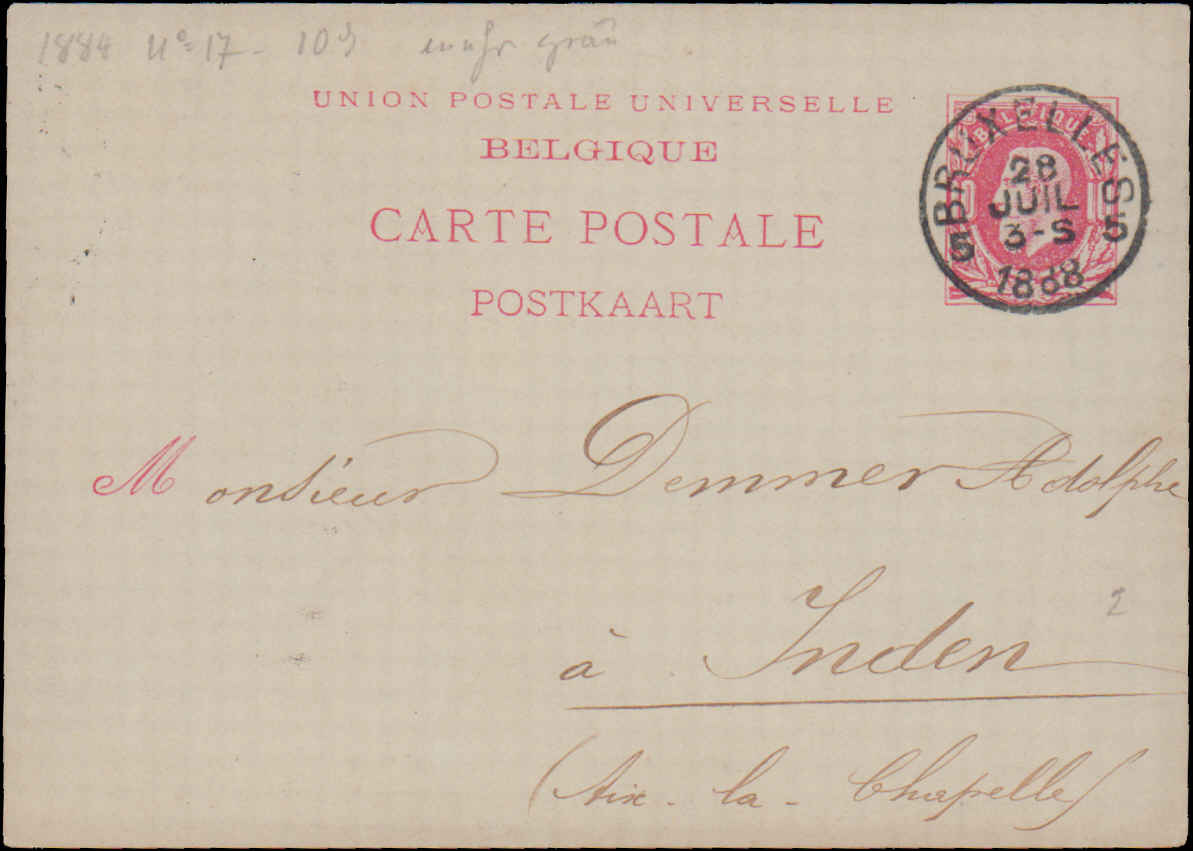 1884 No 17 - 10 mehr grau
UNION POSTALE UNIVERSELLE
BELGIQUE
CARTE POSTALE
POSTKAART
BELGIQUE
BRUXELLES
28
JUIL
3-S
5 5
1888
Monsieur Demmer Adolphe
à Inden
2
(Aix-la-Chapelle)